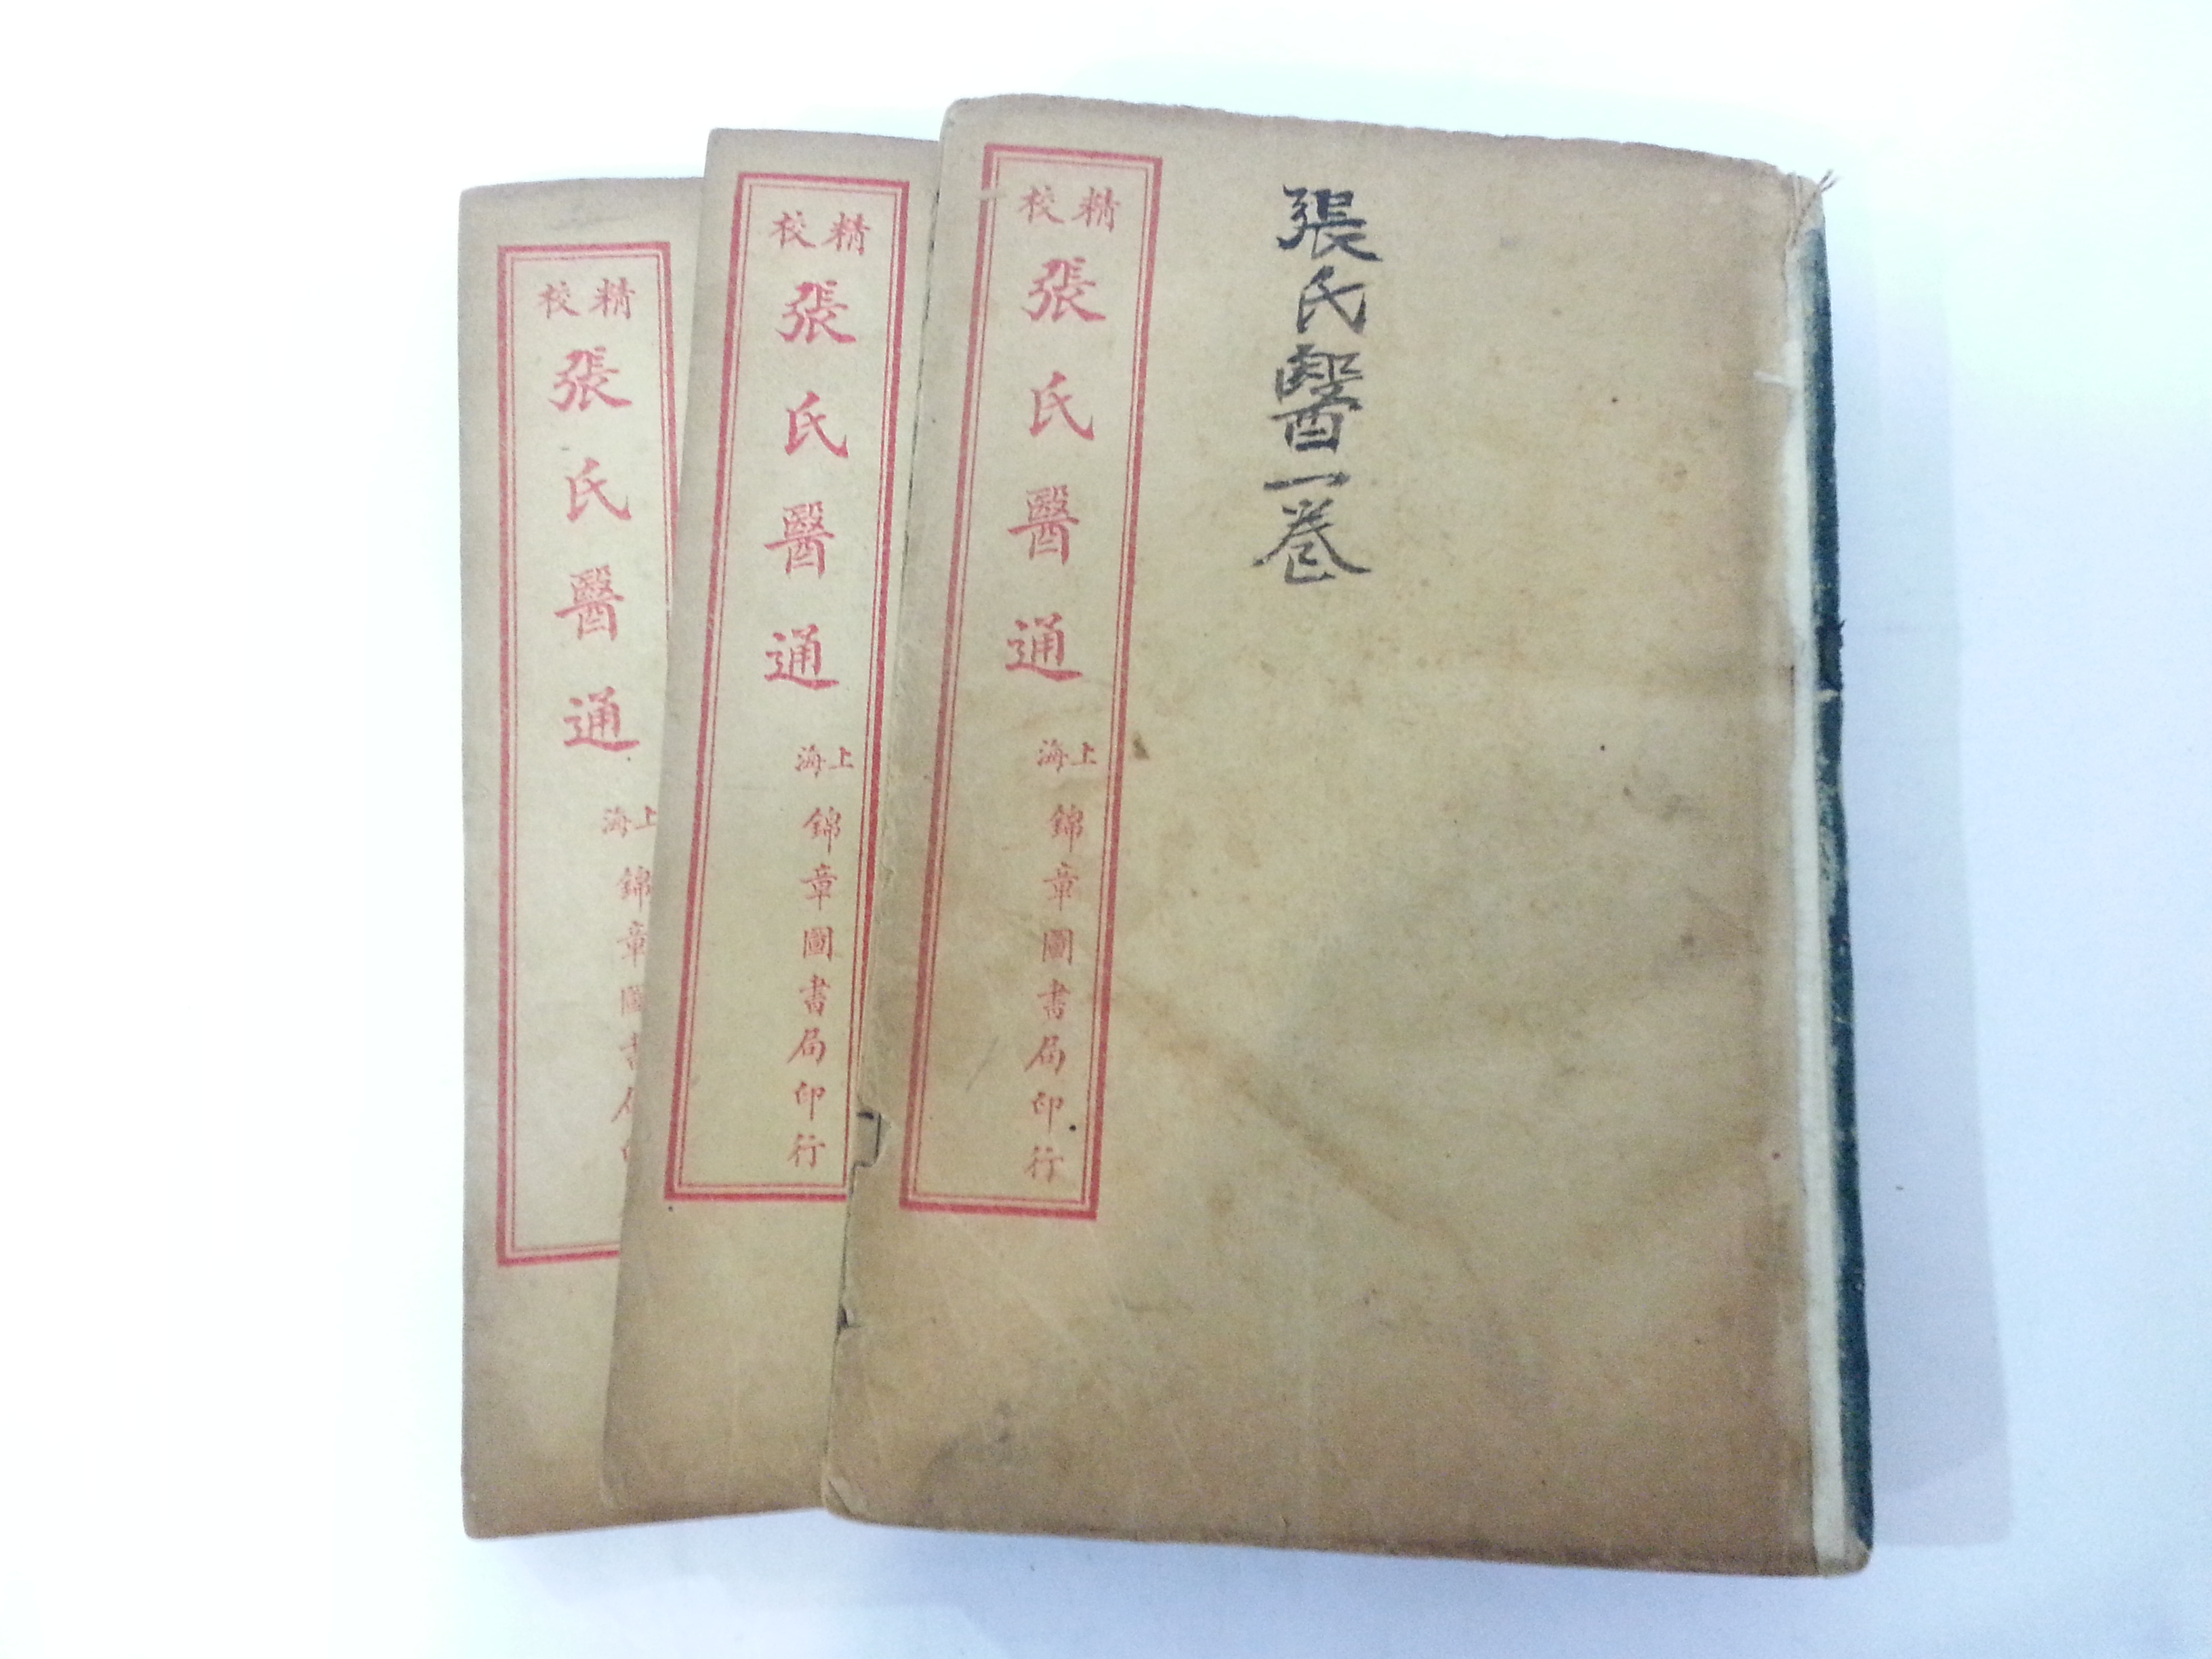 張氏醫一卷
精校
張氏醫通
上海
錦章圖書局印行
精校
張氏醫通
上海
錦章圖書局印行
精校
張氏醫通
上海
錦章圖書局印